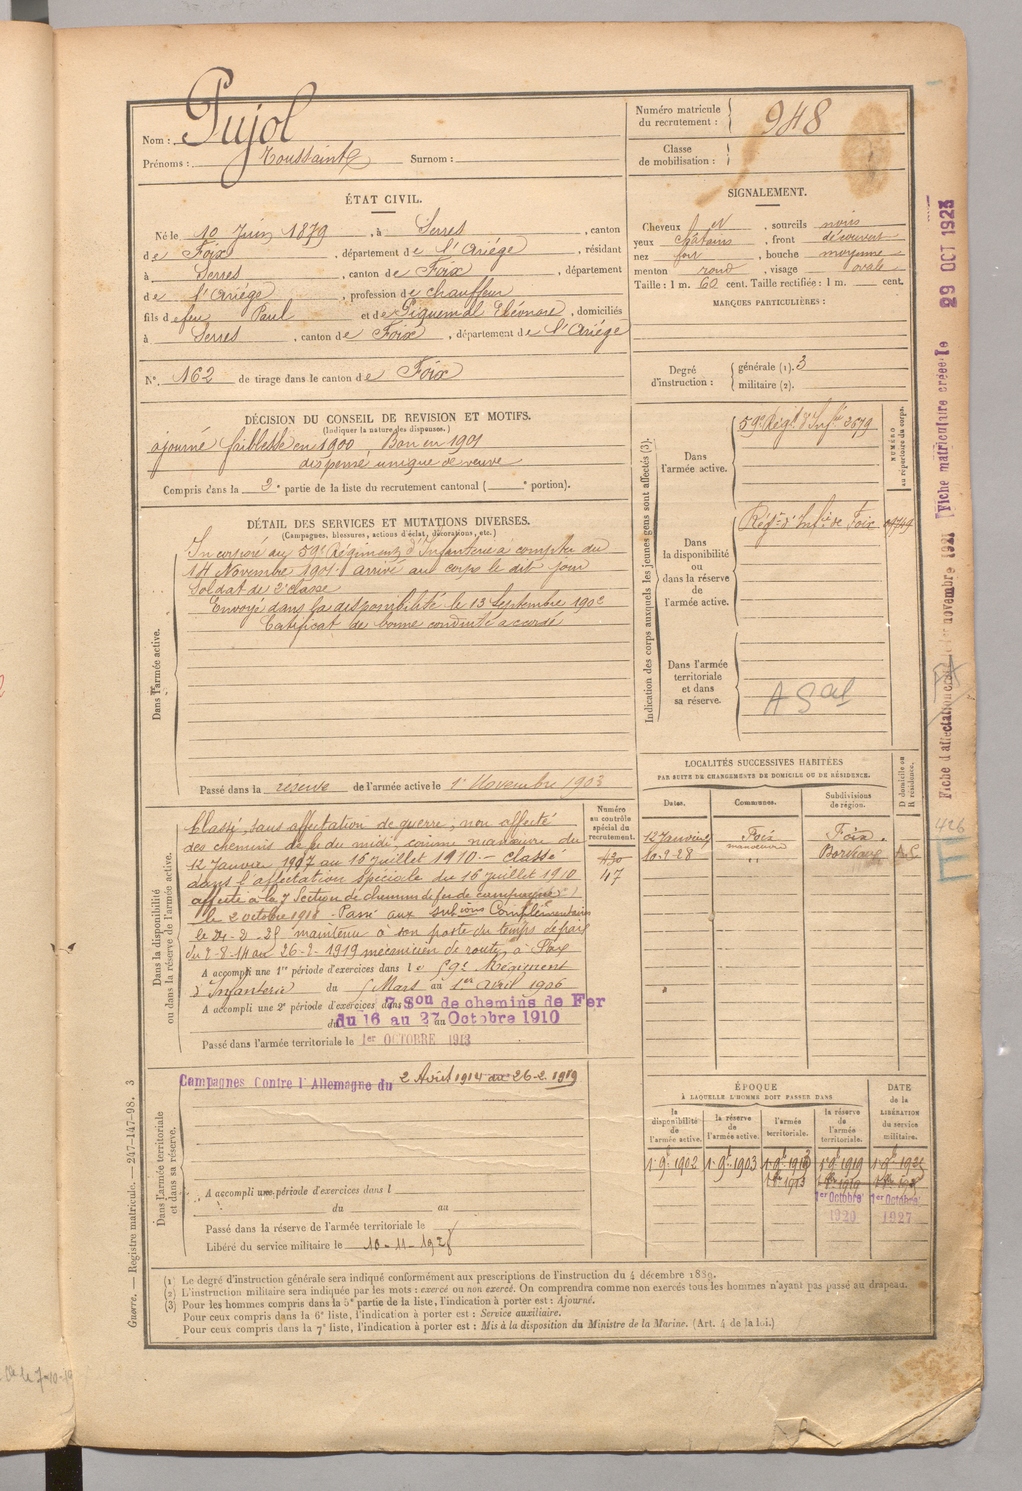 Nom : Pujol
Prénoms : Toussaint Surnom :
Numéro matricule du recrutement : 948
Classe de mobilisation :
ÉTAT CIVIL.
Né le 10 Juin 1879, à Serres, canton
de Foix, département de l'Ariége, résidant
à Serres, canton de Foix, département
de l'Ariége, profession de chauffeur
fils de feu Paul et de Piquemal Eléonore, domiciliés
à Serres, canton de Foix, département de l'Ariége
N°. 162 de tirage dans le canton de Foix
SIGNALEMENT.
Cheveux N, sourcils noirs
yeux chatains, front découvert
nez fort, bouche moyenne
menton rond, visage ovale
Taille : 1 m. 60 cent. Taille rectifiée : 1 m. cent.
MARQUES PARTICULIÈRES :
Degré d'instruction : générale (1). 3
militaire (2).
DÉCISION DU CONSEIL DE REVISION ET MOTIFS.
(Indiquer la nature des dispenses.)
ajourné faiblesse en 1900 Bon en 1901
dispensé unique de veuve
Compris dans la 3e partie de la liste du recrutement cantonal ( e portion).
DÉTAIL DES SERVICES ET MUTATIONS DIVERSES.
(Campagnes, blessures, actions d'éclat, décorations, etc.)
Dans l'armée active.
Incorporé au 59e Régiment d'Infanterie à compter du
14 Novembre 1901 arrivé au corps le dit jour
Soldat de 2e classe
Envoyé dans la disponibilité le 13 Septembre 1902
Certificat de bonne conduite accordé
Passé dans la réserve de l'armée active le 1er Novembre 1903
Indication des corps auxquels les jeunes gens sont affectés (3).
NUMÉRO au répertoire du corps.
Dans l'armée active.
59e Régt d'Infie 3679
Dans la disponibilité ou dans la réserve de l'armée active.
Régt d'Infie de Foix
Dans l'armée territoriale et dans sa réserve.
Dans la disponibilité ou dans la réserve de l'armée active.
Numéro au contrôle spécial du recrutement.
Classé, sans affectation de guerre, non affecté
des chemins de fer du midi, comme manœuvre du
12 Janvier 1907 au 16 juillet 1910. - Classé 430
dans l'affectation spéciale du 16 juillet 1910 47
affecté à la 7 Section de chemins de fer de campagne
le 2 octobre 1918 - Passé aux Subions Complémentaires
maintenu à son poste du temps de paix
du 2-8-14 au 26-2-1919 mécanicien de route à
A accompli une 1re période d'exercices dans le 59e Régiment
d'Infanterie du 5 Mars au 1er avril 1906
A accompli une 2e période d'exercices dans 7e Son de chemins de Fer
du 16 au 27 Octobre 1910
Passé dans l'armée territoriale le 1er OCTOBRE 1913
Dans l'armée territoriale et dans sa réserve.
Campagnes Contre l'Allemagne du 2 Août 1914 au 26-2-1919
A accompli une période d'exercices dans l
du au
Passé dans la réserve de l'armée territoriale le
Libéré du service militaire le 10-11-1928
LOCALITÉS SUCCESSIVES HABITÉES
PAR SUITE DE CHANGEMENTS DE DOMICILE OU DE RÉSIDENCE.
Dates. Communes. Subdivisions de région. D domicile ou R résidence.
12 Janvier Foix Foix.
manœuvre
10-9-28 Bordeaux
ÉPOQUE
À LAQUELLE L'HOMME DOIT PASSER DANS
la disponibilité de l'armée active. la réserve de l'armée active. l'armée territoriale. la réserve de l'armée territoriale. DATE de la LIBÉRATION du service militaire.
1902 1903 1913 1919
1er Octobre 1920 1er Octobre 1927
(1) Le degré d'instruction générale sera indiqué conformément aux prescriptions de l'instruction du 4 décembre 1889.
(2) L'instruction militaire sera indiquée par les mots : exercé ou non exercé. On comprendra comme non exercés tous les hommes n'ayant pas passé au drapeau.
(3) Pour les hommes compris dans la 5e partie de la liste, l'indication à porter est : Ajourné.
Pour ceux compris dans la 6e liste, l'indication à porter est : Service auxiliaire.
Pour ceux compris dans la 7e liste, l'indication à porter est : Mis à la disposition du Ministre de la Marine. (Art. 4 de la loi.)
Guerre. — Registre matricule. — 247-147-98. 3
Fiche d'affectation créée le 1er novembre 1921
Fiche matriculaire créée le 29 OCT 1923
426